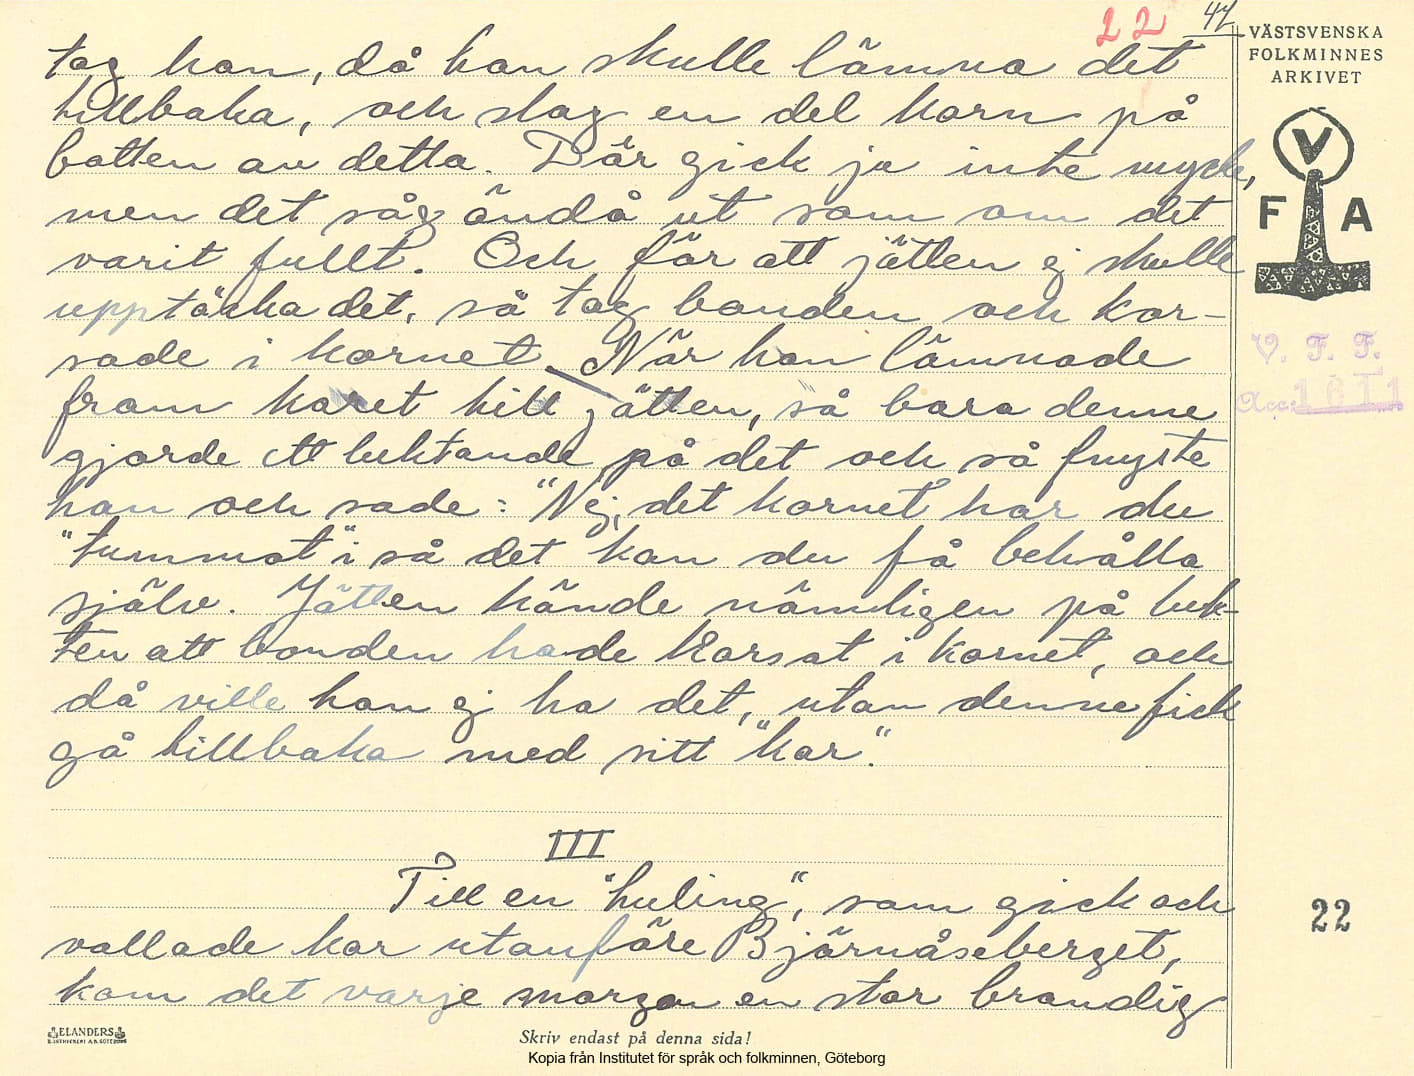 22 47
VÄSTSVENSKA
FOLKMINNES
ARKIVET
V
F A
V. F. F.
Acc. 1611
tog han, då han skulle lämna det
tillbaka, och slog en del korn på
botten av detta. Där gick ju inte mycke,
men det såg ändå ut som om det
varit fullt. Och för att jätten ej skulle
upptäcka det, så tog bonden och kor-
sade i kornet. När han lämnade
fram karet till jätten, så bara denne
gjorde ett luktande på det och så fnyste
han och sade: "Nej, det kornet har du
"tummat" i så det kan du få behålla
själv. Jätten kände nämligen på luk-
ten att bonden hade korsat i kornet, och
då ville han ej ha det, utan denne fick
gå tillbaka med sitt "kar".
III
Till en "huling", som gick och
vallade kor utanföre Björnåseberget,
kom det varje morgon en stor brandig
22
ELANDERS
Skriv endast på denna sida!
Kopia från Institutet för språk och folkminnen, Göteborg